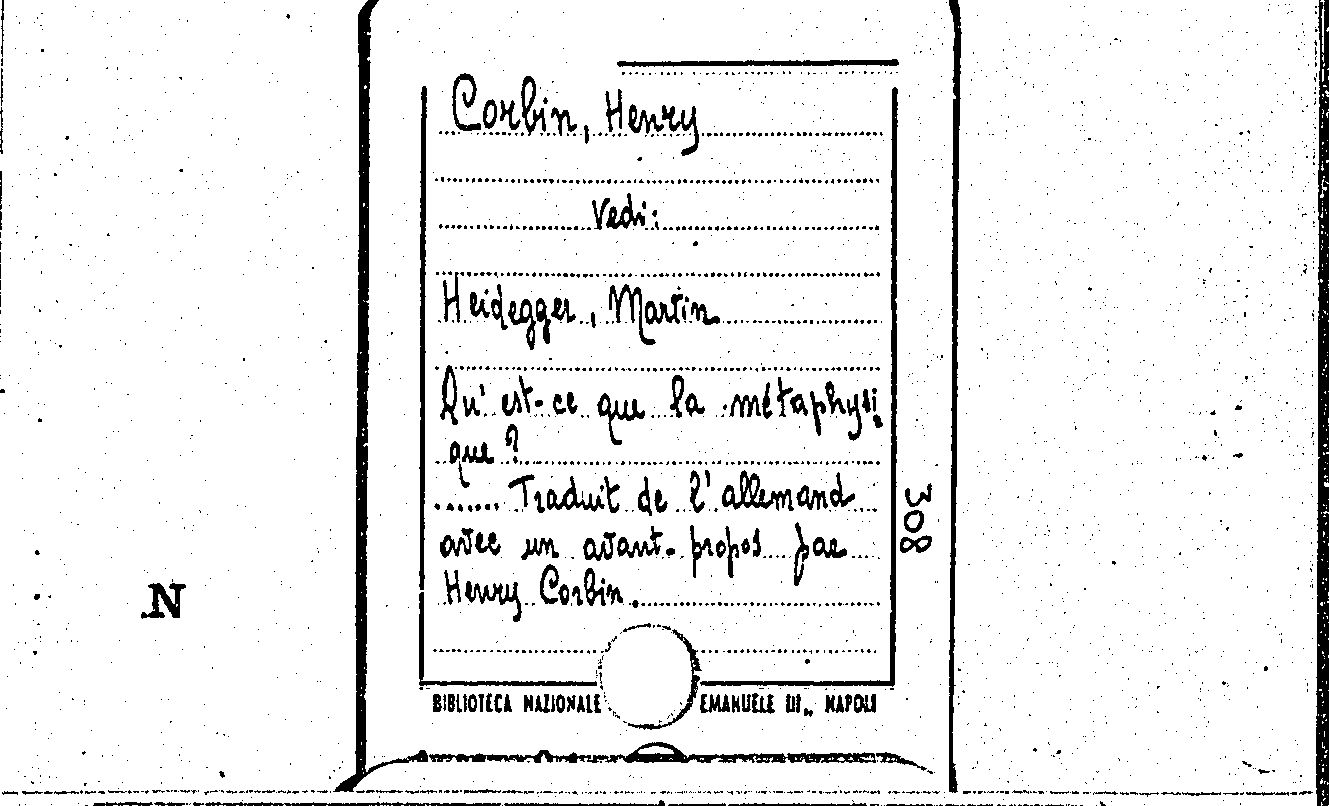 Corbin, Henry
Vedi:
Heidegger, Martin
Qu'est-ce que la métaphysi
que?
....... Traduit de l'allemand
avec un avant-propos par
Henry Corbin.
308
N
BIBLIOTECA NAZIONALE EMANUELE III„ NAPOLI